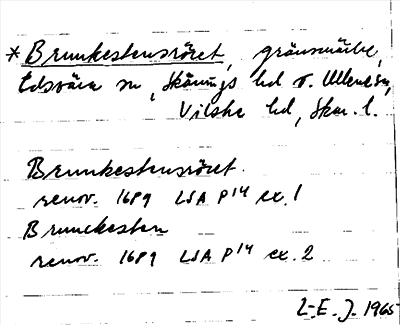 * Brunkestensröset, gränsmärke,
Edsvära sn, Skånings hd o. Ullene sn,
Vilske hd, Skar. l.
Brunkestensröset
renov. 1689 LSA P14 ex. 1
Brunckesten
renov. 1689 LSA P14 ex. 2
L-E. J. 1965